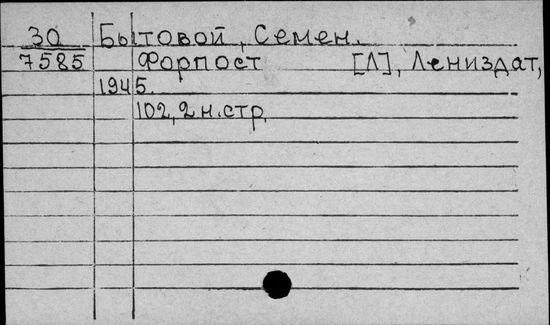 30 Бытовой, Семен.
7585 Форпост [Л], Лениздат,
1945.
102, 2 н. стр.